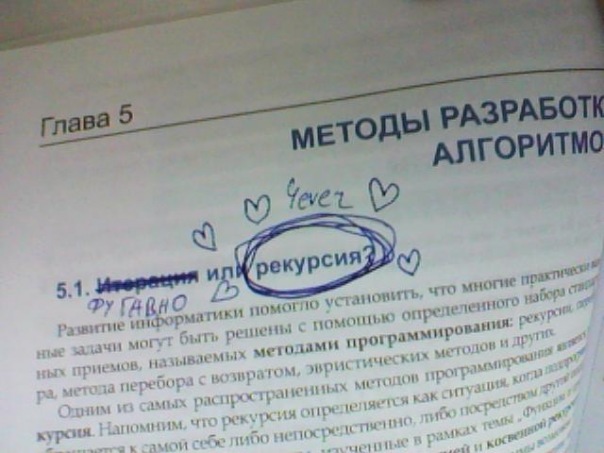 Глава 5
МЕТОДЫ РАЗРАБОТК
АЛГОРИТМО
4ever
5.1. Итерация или рекурсия?
ФУ ГАВНО
Развитие информатики помогло установить, что многие практически
ные задачи могут быть решены с помощью определенного набора
ных приемов, называемых методами программирования: рекурсии,
ра, метода перебора с возвратом, эвристических методов и других.
Одним из самых распространенных методов программирования является
курсия. Напомним, что рекурсия определяется как ситуация, когда
к самой себе либо непосредственно, либо посредством другой
изученные в рамках темы „Функции и
и косвенной